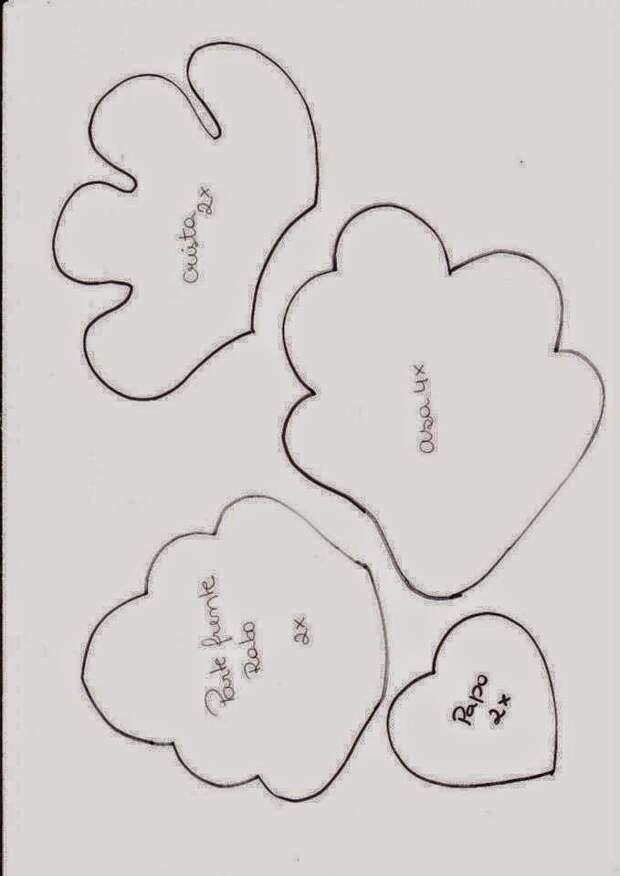 crista
2x
asa 4x
Parte frente
Rabo
2x
Papo
2x